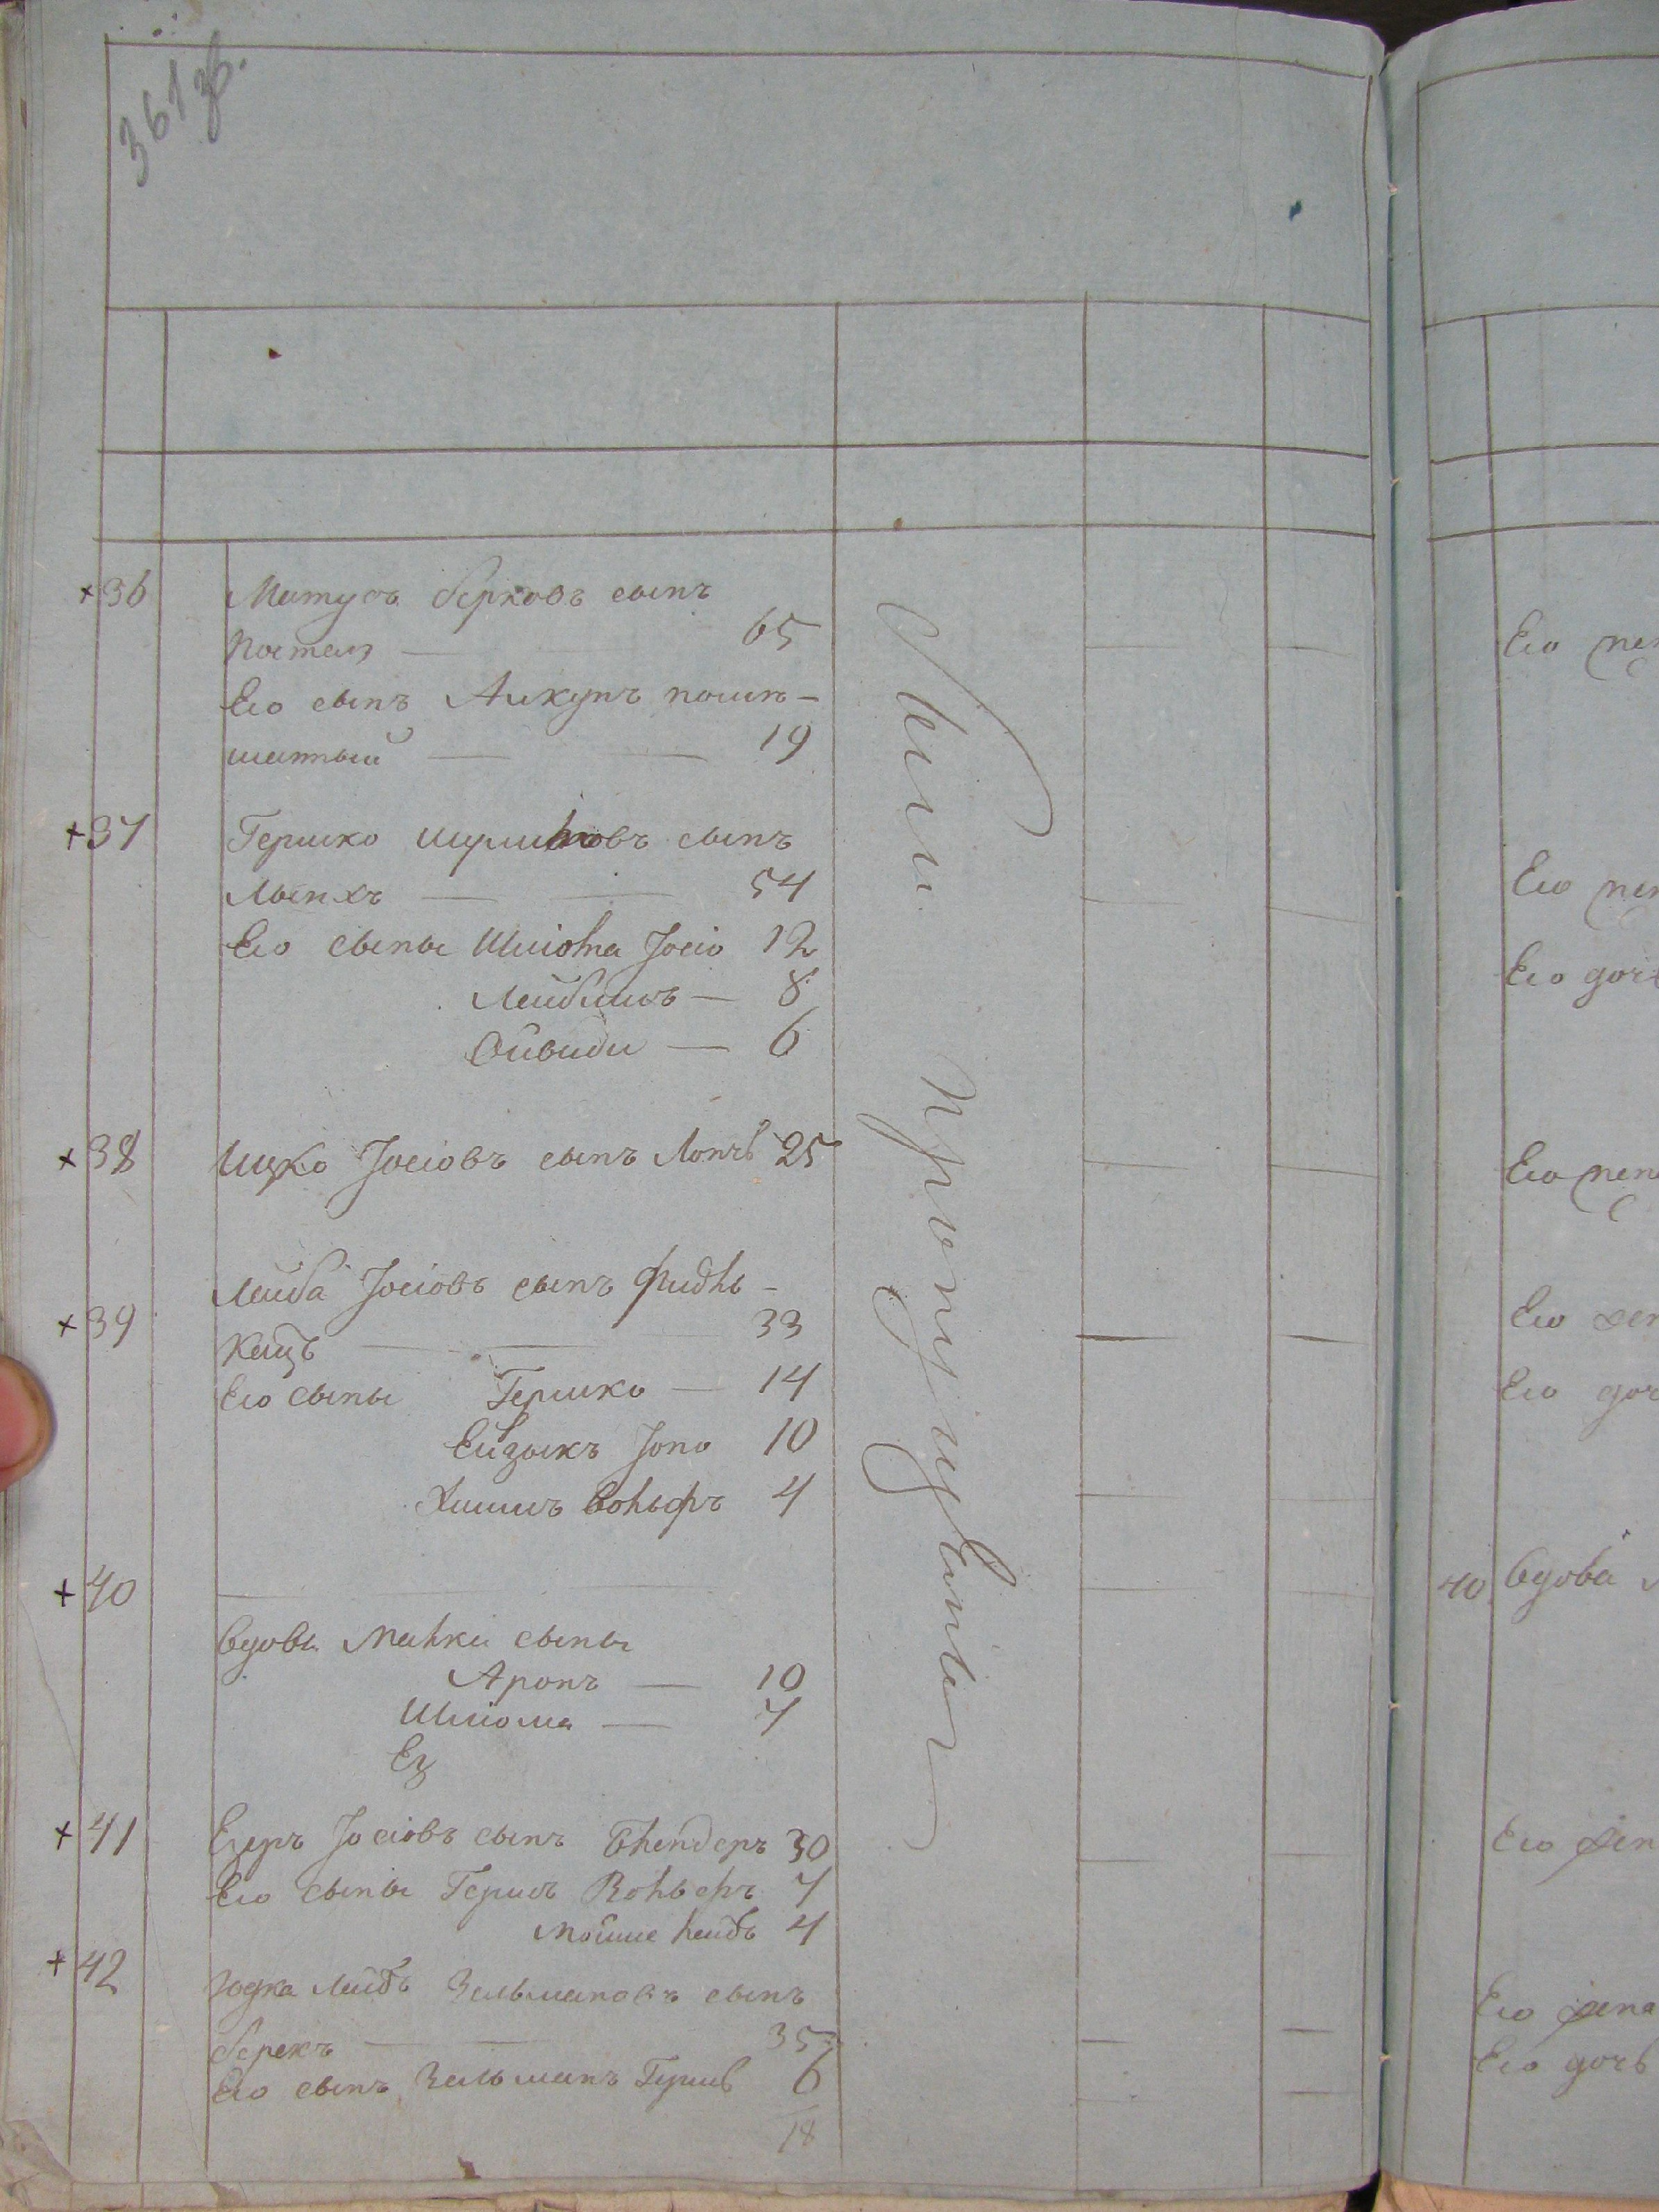 361 зв.
+36 Матусъ Берковъ сынъ
Костель — 65
Его сынъ Анкунъ помѣ-
шатный — — 19
+37 Гершко Шулимовъ сынъ
— — 54
Его сыны Шліома Іосіо 12
Лейбишъ — 8
— 6
+38 Ицко Іосіовъ сынъ 25
Лейба Іосіовъ сынъ Фидль-
+39 — — 33
Его сыны Гершко — 14
Ейзыкъ Іоно 10
Хаимъ Вольфъ 4
+40
Вдовы Малки сыны
Аронъ — 10
Шліома — 7
Ез
+41 Езеръ Іосіовъ сынъ Блендеръ 30
Его сыны Гершъ Вольфъ 7
Мойше Лейбъ 4
+42 Юдка Лейбъ Зельмановъ сынъ
Берекъ — — 35
Его сынъ Зельманъ Гершъ 6
18
были пропущены
Его жен
Его жен
Его доч
Его жена
Его жен
Его доч
40 Вдова М
Его жен
Его жена
Его дочь